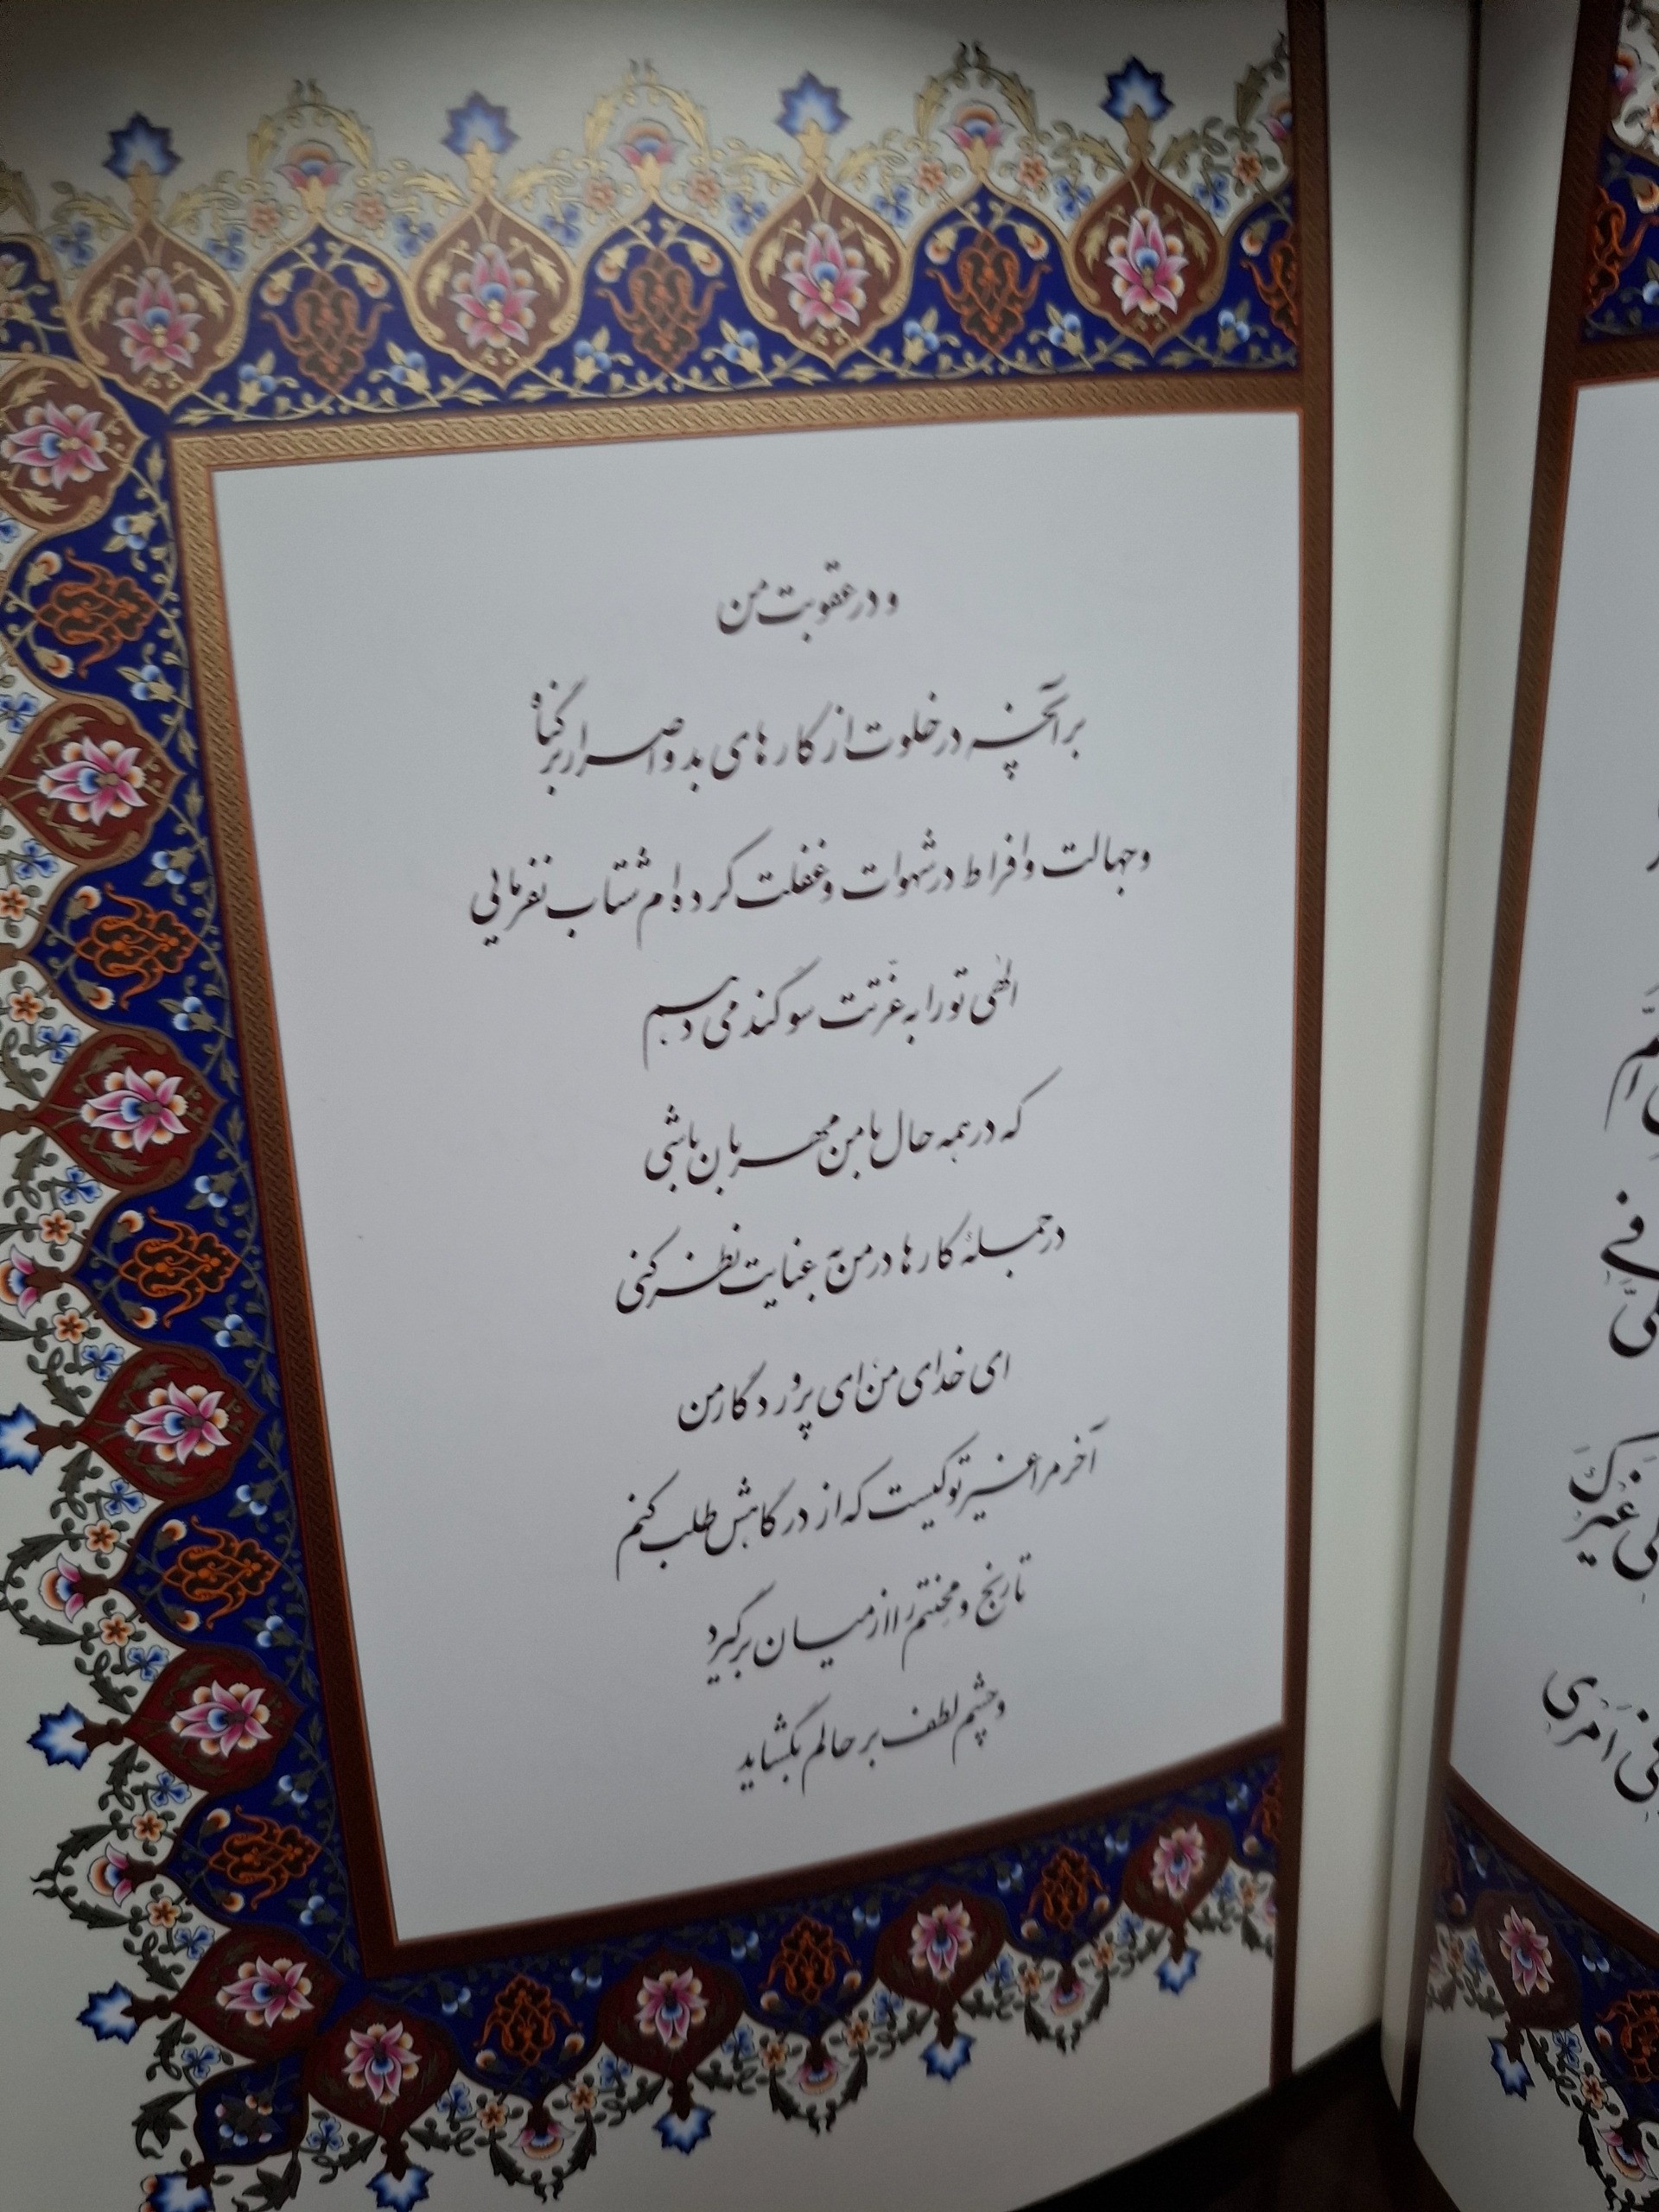 و در عقوبت من
بر آنچه در خلوت از کارهای بد و اصرار بر گناه
و جهالت و افراط در شهوات و غفلت کرده‌ام شتاب نفرمایی
الهی تو را به عزتت سوگند می‌دهم
که در همه حال با من مهربان باشی
در جملهٔ کارها در من به عنایت نظر کنی
ای خدای من ای پروردگار من
آخر مرا غیر تو کیست که از درگاهش طلب کنم
تا رنج و محنتم را از میان برگیرد
و چشم لطف بر حالم بگشاید
فی
غیرک
فی امری